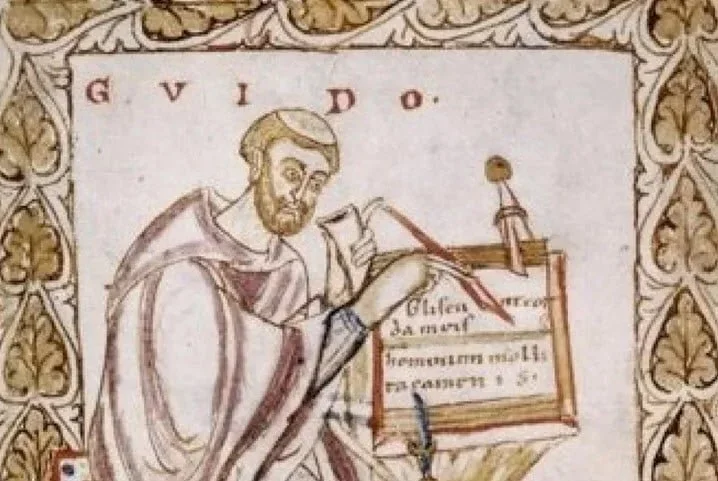 GVIDO.
Gliscunt cor
da meis
hominum molli
ta camenis